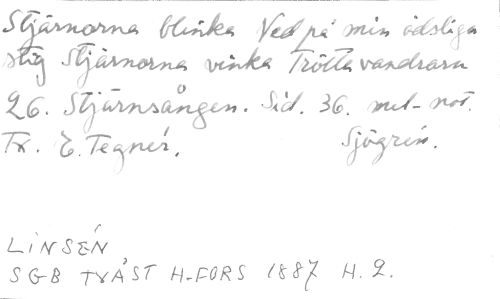 Stjärnorna blinka Ned på min ödsliga
stig Stjärnorna vinka Trötta vandraren
26. Stjärnsången. Sid. 36. mel-not.
Tx. E. Tegnér. Sjögrén.
LINSÉN
SGB TVÅST H-FORS 1887 H. 2.